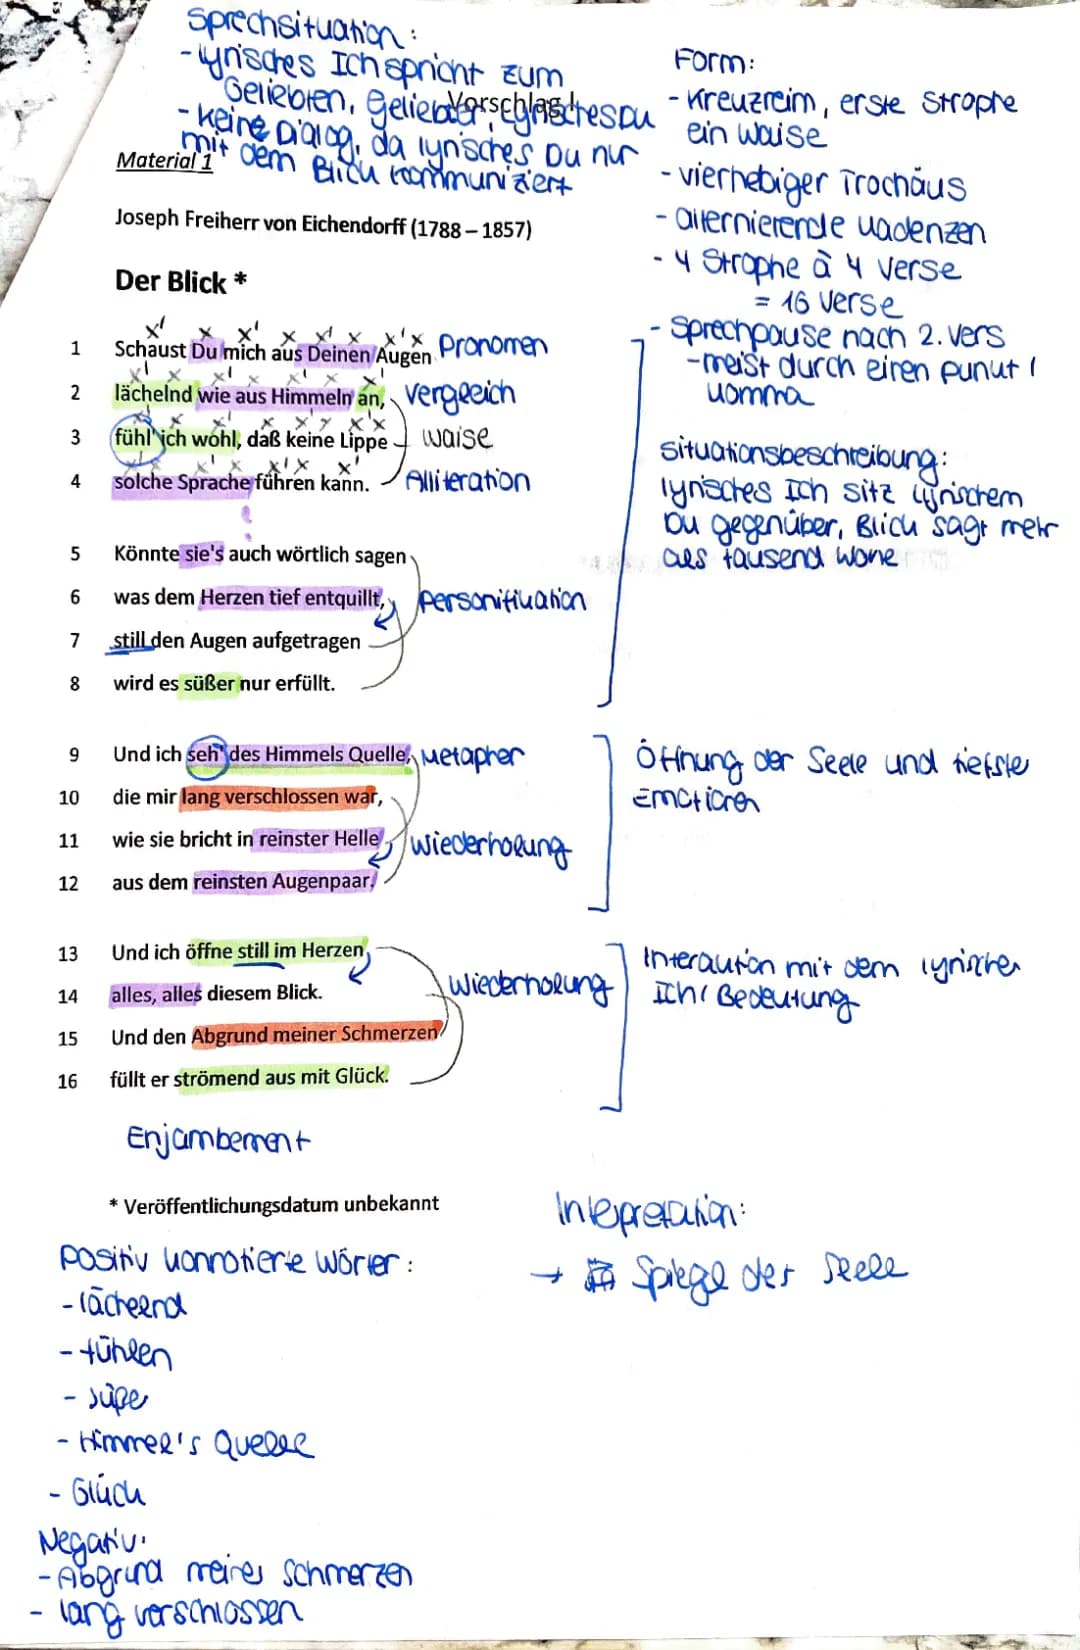 Sprechsituation:
-lyrisches Ich spricht zum
Geliebten, Geliebter, lyrisches Du
Vorschlag 1
- keine Dialog, da lyrisches Du nur
mit dem Blick kommuniziert
Material 1
Joseph Freiherr von Eichendorff (1788 – 1857)
Der Blick *
1 Schaust Du mich aus Deinen Augen Pronomen
2 lächelnd wie aus Himmeln an, Vergleich
3 fühl' ich wohl, daß keine Lippe Waise
4 solche Sprache führen kann. Alliteration
!
5 Könnte sie's auch wörtlich sagen
6 was dem Herzen tief entquillt, Personifikation
7 still den Augen aufgetragen
8 wird es süßer nur erfüllt.
9 Und ich seh' des Himmels Quelle, Metapher
10 die mir lang verschlossen war,
11 wie sie bricht in reinster Helle Wiederholung
12 aus dem reinsten Augenpaar.
13 Und ich öffne still im Herzen,
14 alles, alles diesem Blick. Wiederholung
15 Und den Abgrund meiner Schmerzen
16 füllt er strömend aus mit Glück.
Enjambement
* Veröffentlichungsdatum unbekannt
Form:
- Kreuzreim, erste Strophe
ein Waise
- vierhebiger Trochäus
- alternierende Kadenzen
- 4 Strophe à 4 Verse
= 16 Verse
- Sprechpause nach 2. Vers
-meist durch einen Punkt /
Komma
Situationsbeschreibung:
lyrisches Ich sitz lyrischem
Du gegenüber, Blick sagt mehr
als tausend Worte
Öffnung der Seele und tiefste
Emotionen
Interaktion mit dem lyrischen
Ich / Bedeutung
Intepretation:
→ Spiegel der Seele
Positiv konnotierte Wörter:
-lächelnd
- fühlen
- süße
- Himmel's Quelle
- Glück
Negativ:
-Abgrund meines Schmerzen
- lang verschlossen